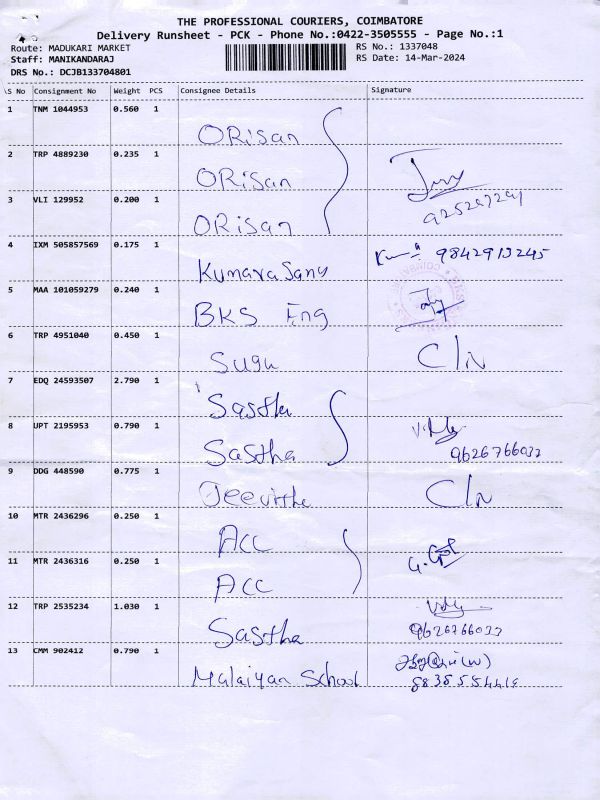 THE PROFESSIONAL COURIERS, COIMBATORE
Delivery Runsheet - PCK - Phone No.:0422-3505555 - Page No.:1
Route: MADUKARI MARKET
RS No.: 1337048
Staff: MANIKANDARAJ
RS Date: 14-Mar-2024
DRS No.: DCJB133704801
S No Consignment No Weight PCS Consignee Details Signature
1 TNM 1044953 0.560 1
ORiSan
2 TRP 4889230 0.235 1
ORiSan
3 VLI 129952 0.200 1
ORiSan
4 IXM 505857569 0.175 1
KumaraSamy 9842913245
5 MAA 101059279 0.240 1
BKS Eng
6 TRP 4951040 0.450 1
Sugu C/N
7 EDQ 24593507 2.790 1
Sastha
8 UPT 2195953 0.790 1
Sastha 9626766033
9 DDG 448590 0.775 1
Jeevitha C/N
10 MTR 2436296 0.250 1
ACC
11 MTR 2436316 0.250 1
ACC
12 TRP 2535234 1.030 1
Sastha 9626766033
13 CMM 902412 0.790 1
Malaiyan School